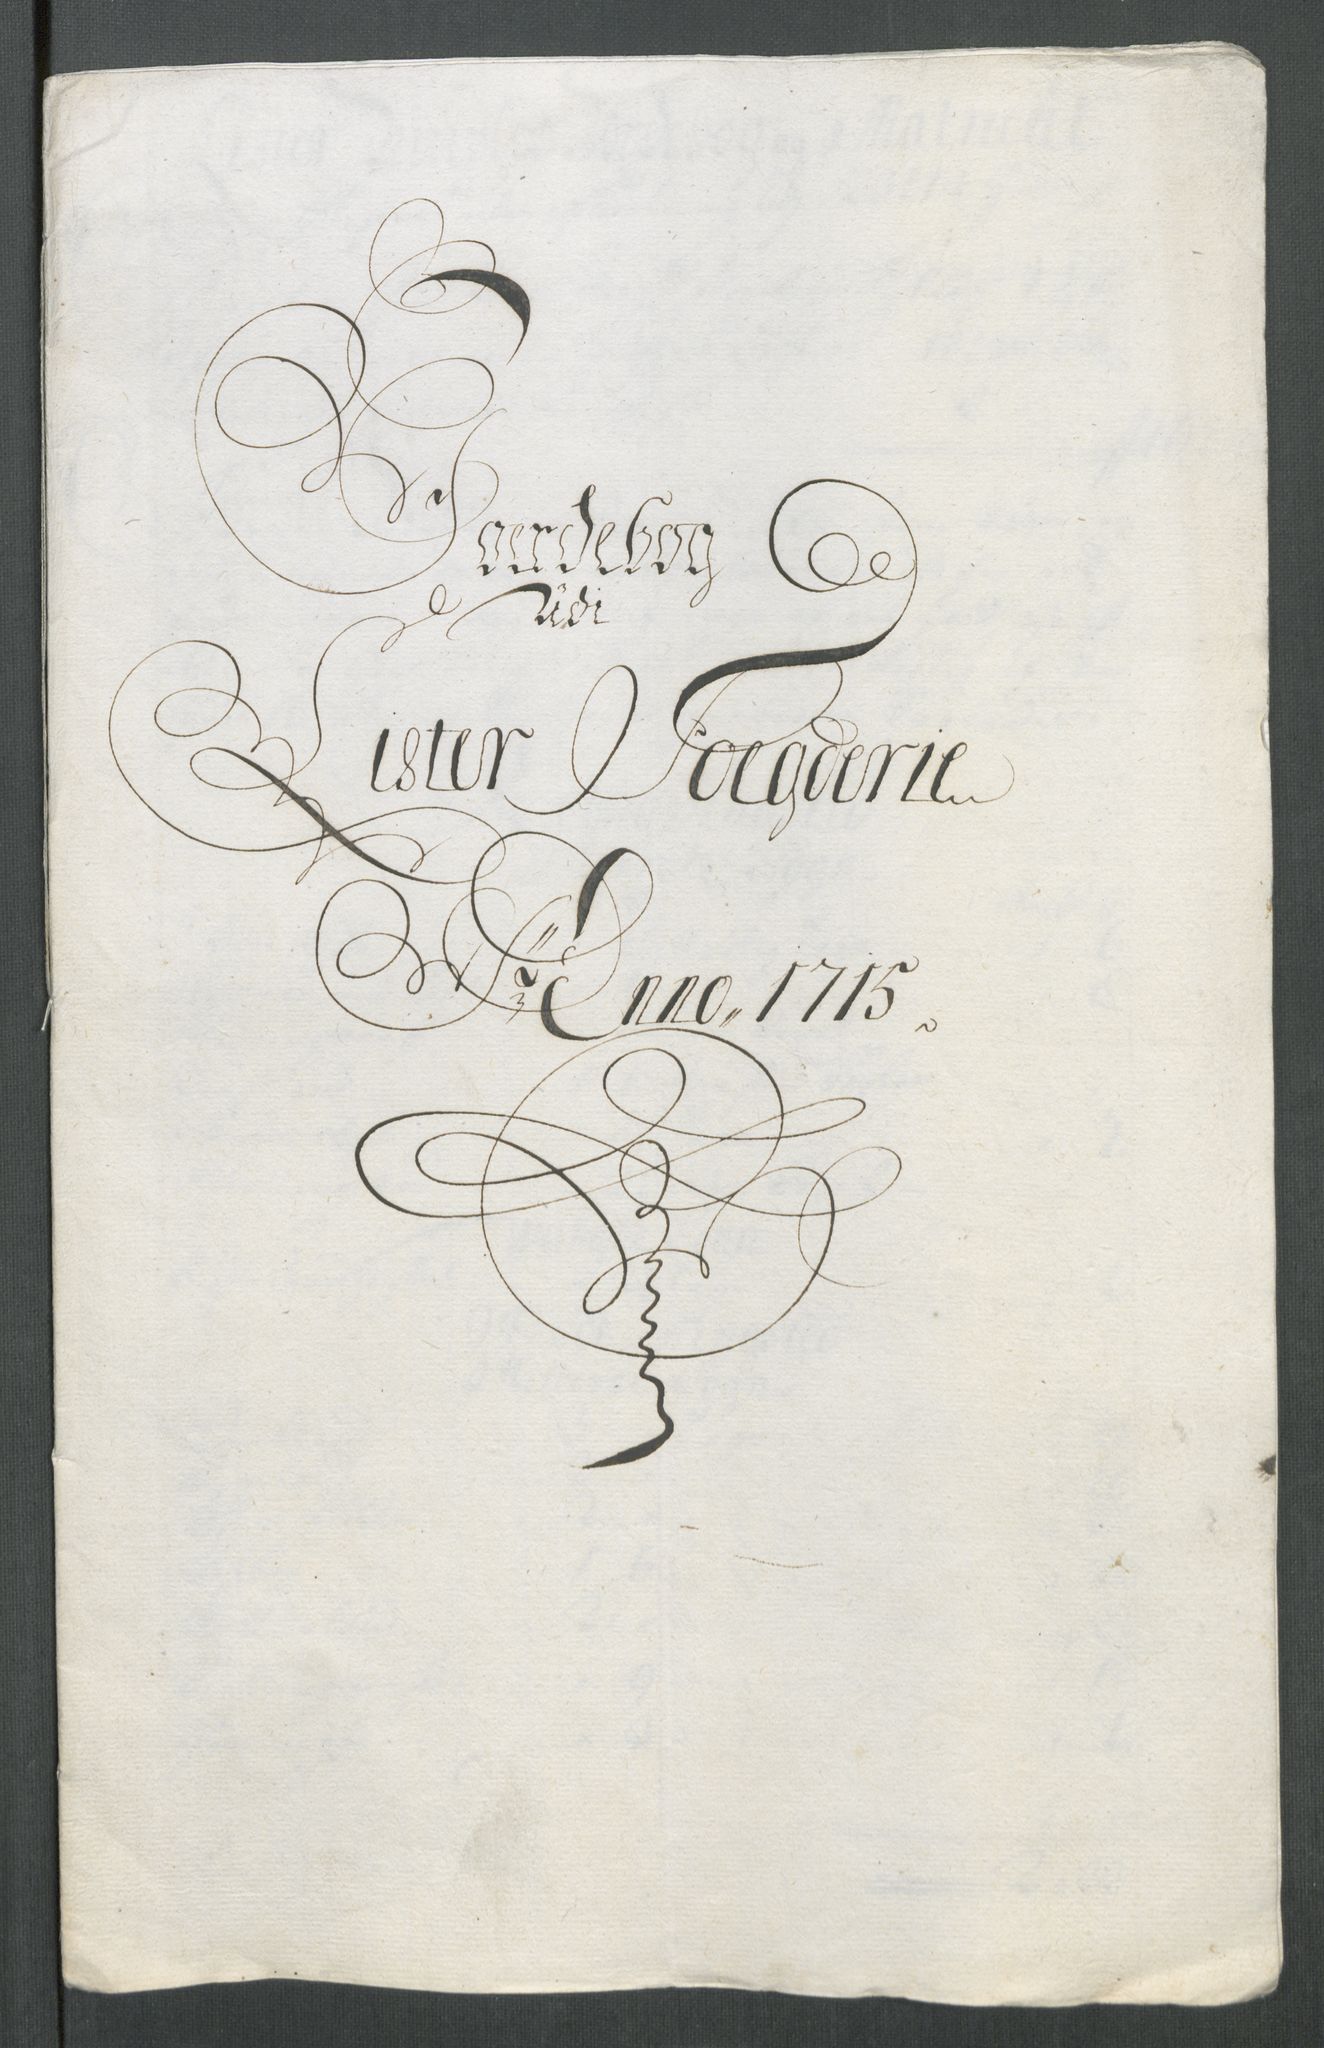 Joerdebog
Udi
Lister Foegderie
Anno 1715